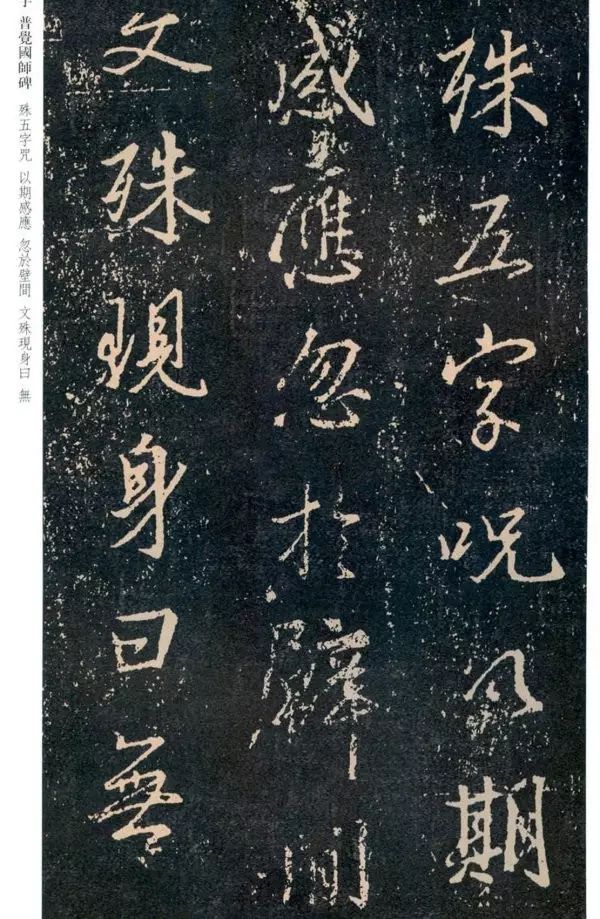 殊五字呪以期
感應忽於壁間
文殊現身曰無
普覺國師碑 殊五字咒 以期感應 忽於壁間 文殊現身曰 無